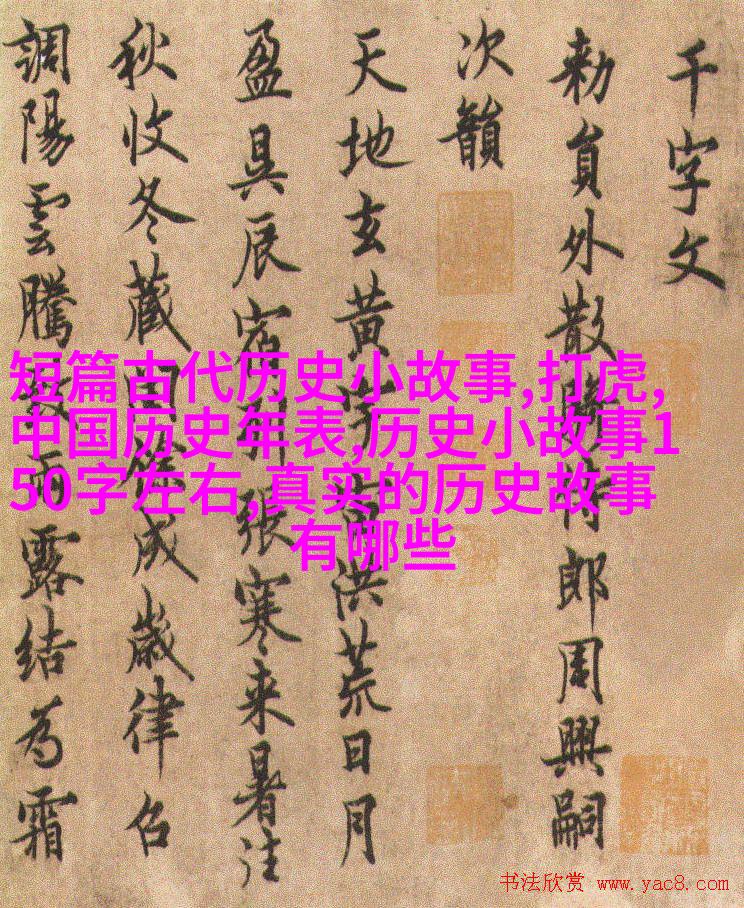 千字文
勅員外散騎侍郎周興嗣
次韻
天地玄黃宇宙洪荒日月
盈昃辰宿列張寒来暑往
秋收冬藏閏餘成歲律召
調陽雲騰致雨露結為霜
短篇古代历史小故事,打虎,
中国历史年表,历史小故事1
50字左右,真实的历史故事
有哪些
书法欣赏 www.yac8.com